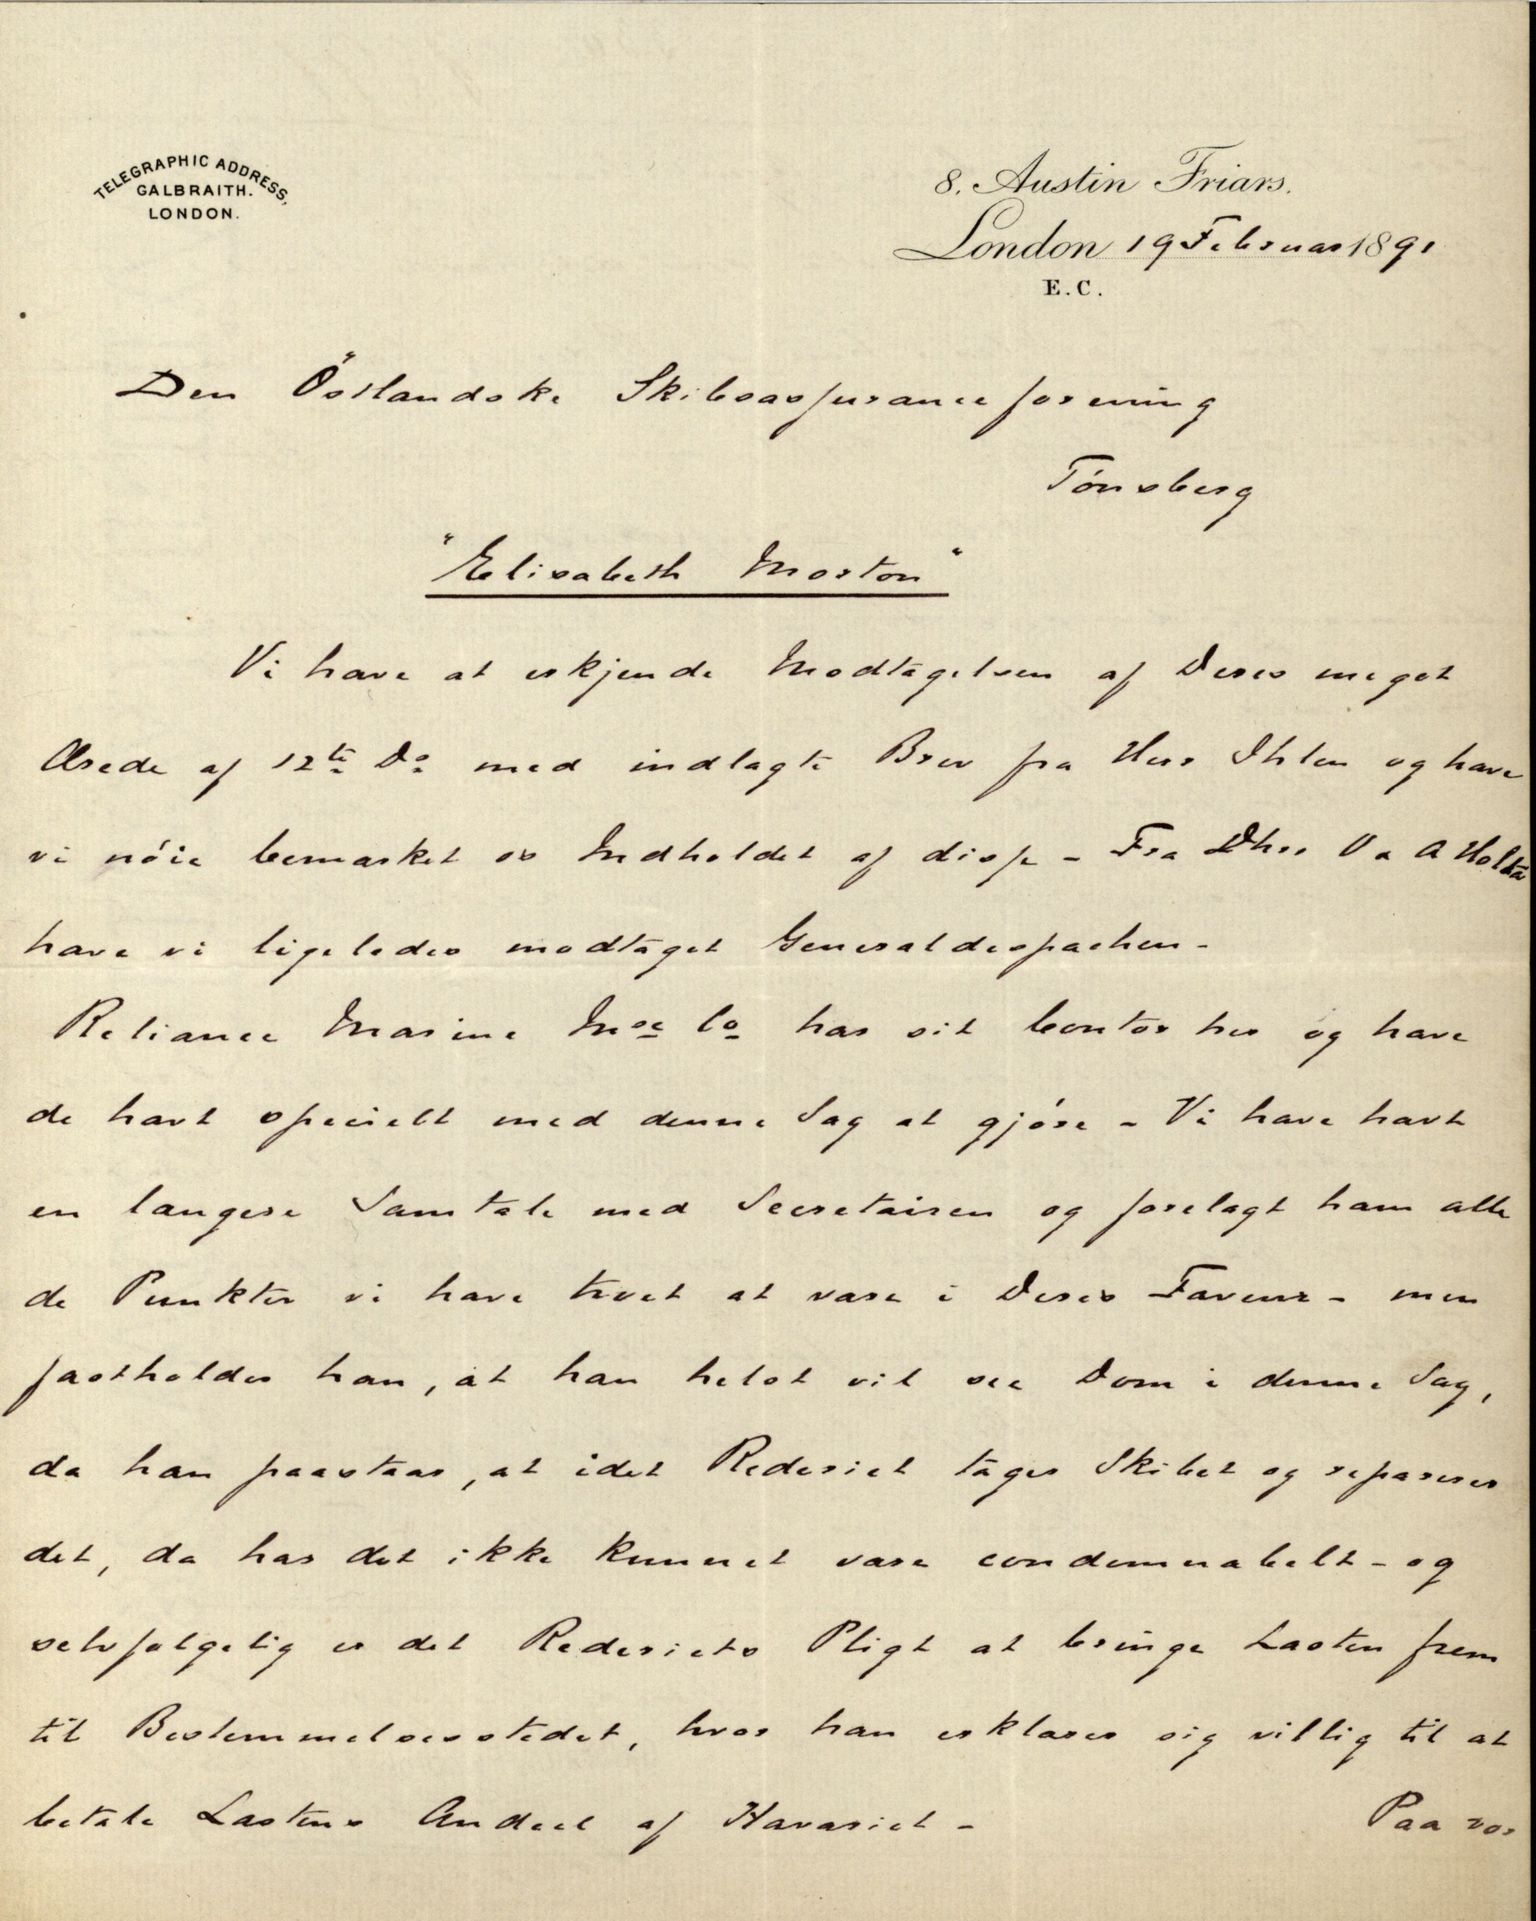 TELEGRAPHIC ADDRESS,
GALBRAITH.
LONDON.
8. Austin Friars.
London 19 Februar 1891
E.C.
Den Östlandske Skibsassuranceforening
Tönsberg
"Elisabeth Morton"
Vi have at erkjende Modtagelsen af Deres meget
Ærede af 12te Do med indlagte Brev fra Herr Ihlen og have
vi nóie bemærket os Indholdet af disse - Fra Dhrr V & A Holta
have vi ligeledes modtaget Generaldespachen -
Reliance Marine Inse Co har sit Contor her og have
de havt specielt med denne Sag at gjóre - Vi have havt
en længere Samtale med Secretairen og forelagt ham alle
de Punkter vi have troet at være i Deres Faveur - men
fastholder han, at han helst vil see Dom i denne Sag,
da han paastaar, at idet Rederiet tager Skibet og reparerer
det, da har det ikke kunnet være condemnabelt - og
selvfølgelig er det Rederiets Pligt at bringe Lasten frem
til Bestemmelsesstedet, hvor han erklærer sig villig til at
betale Lastens Andeel af Havariet -
Paa vor